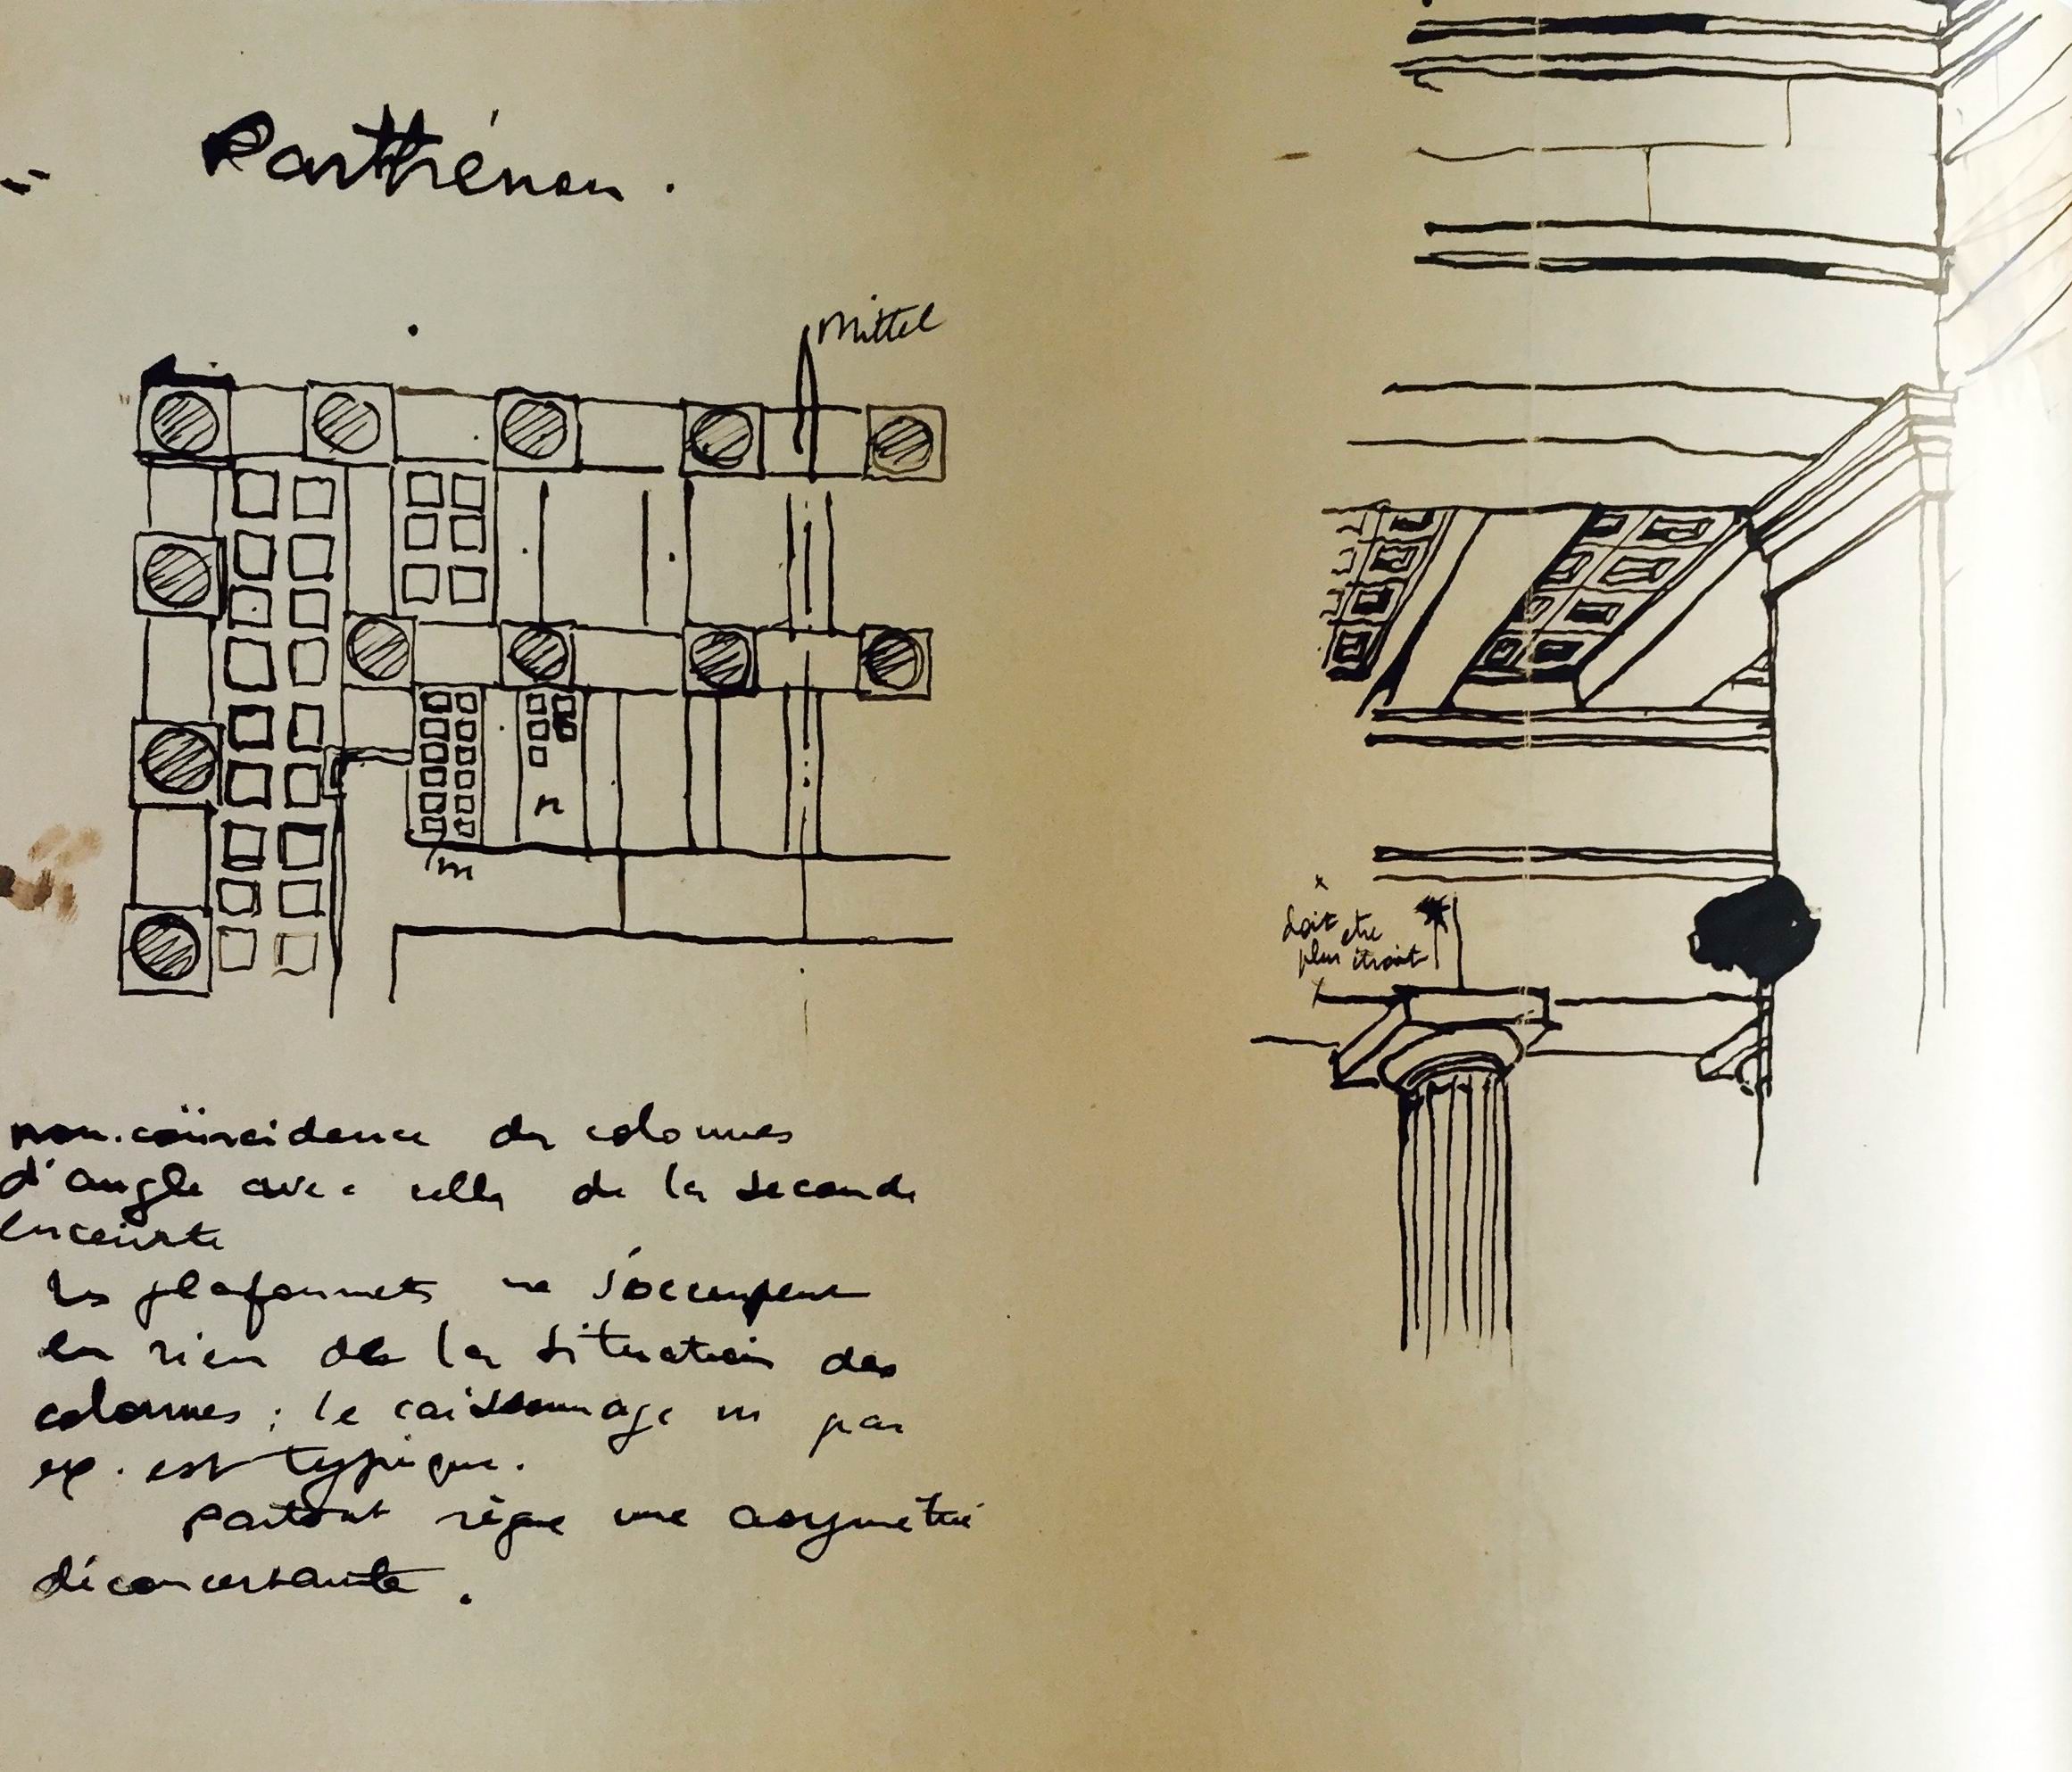 Parthénon.
Mittel
n
m
doit etre
plus étroit
non-coïncidence des colonnes
d'angle avec celles de la seconde
enceinte
les plafonnets ne s'occupent
en rien de la situation des
colonnes ; le caissonnage m par
ex. est typique.
Partout règne une asymétrie
déconcertante.